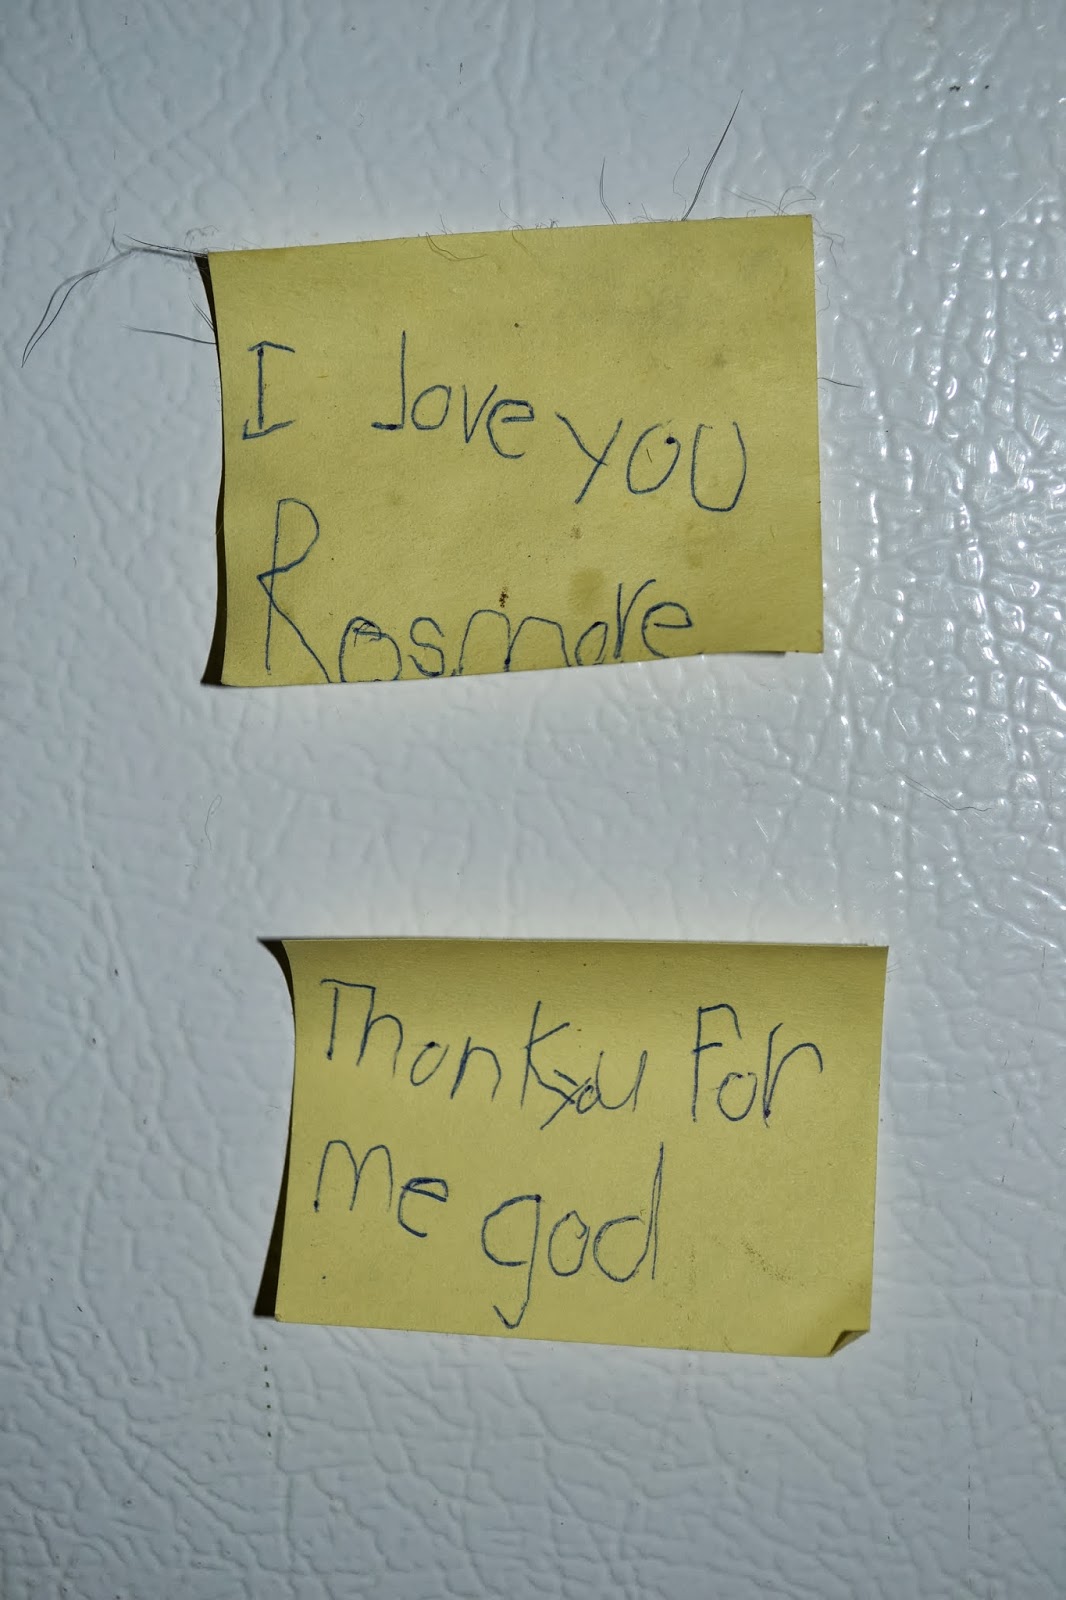 I love you
Rosmore
Thank you For
me god